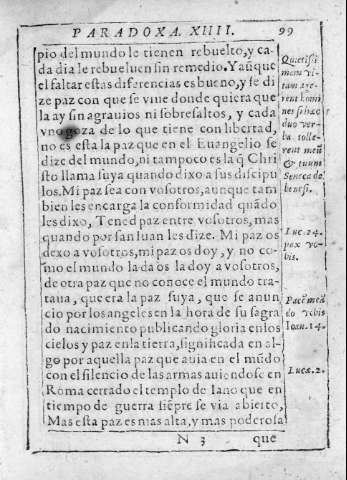 PARADOXA. XIIII. 99
pio del mundo le tienen rebuelto, y ca-
da dia le rebueluen sin remedio. Y aũque
el faltar estas diferencias es bueno, y se di
ze paz con que se viue donde quiera que
la ay sin agrauios ni sobresaltos, y cada
vno goza de lo que tiene con libertad,
no es esta la paz que en el Euangelio se
dize del mundo, ni tampoco es la q̃ Chri
sto llama suya quando dixo a sus discipu
los. Mi paz sea con vosotros, aunque tam
bien les encarga la conformidad quãdo
les dixo, Tened paz entre vosotros, mas
quando por san Iuan les dize. Mi paz os
dexo a vosotros, mi paz os doy, y no co-
mo el mundo la da os la doy a vosotros,
de otra paz que no conoce el mundo tra-
taua, que era la paz suya, que se anun
cio por los angeles en la hora de su sagra
do nacimiento publicando gloria en los
cielos y paz en la tierra, significada en al-
go por aquella paz que auia en el mũdo
con el silencio de las armas auiendose en
Roma cerrado el templo de Iano que en
tiempo de guerra siẽpre se via abierto,
Mas esta paz es mas alta, y mas poderosa
N 3 que
Quietissi
mam vi-
tam age-
rent homi
nes si hæc
duo ver-
ba tolle-
rent meũ
& tuum
Seneca de
benefi.
Luc. 24.
pax vo-
bis.
Pacẽ meã
do vobis
Ioan. 14.
Lucæ. 2.